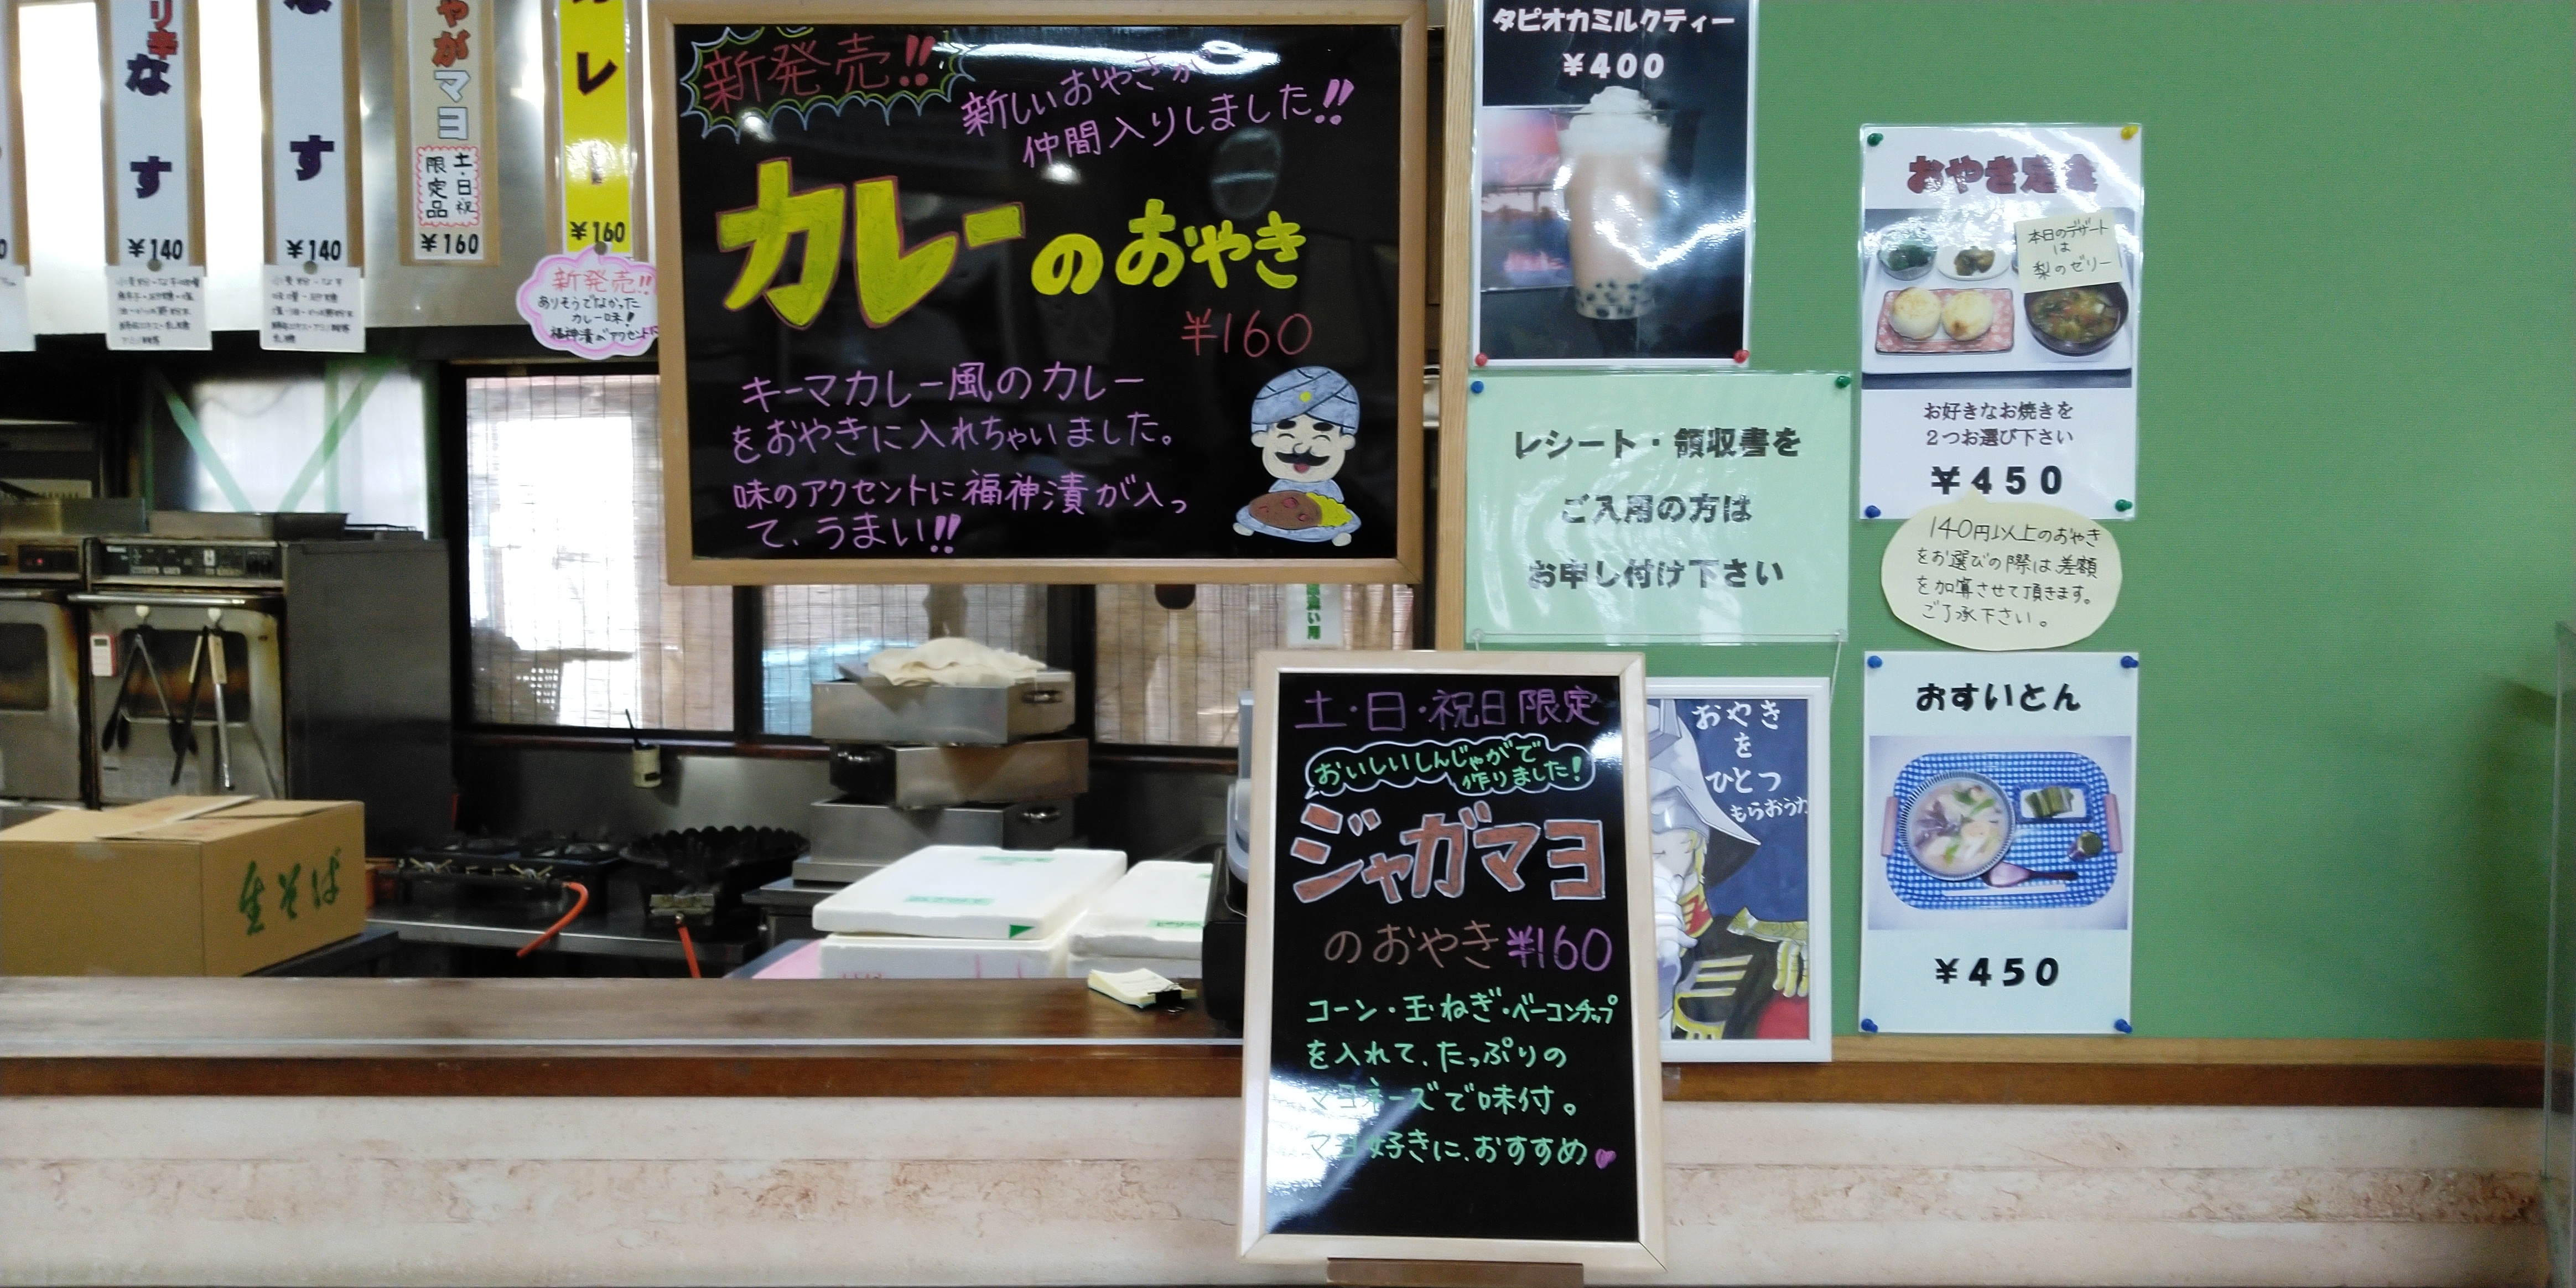 リ辛
なす
¥140
す
¥140
やが
マヨ
土・日・祝
限定品
¥160
カレー
¥160
新発売!!
ありそうでなかった
カレー味!
福神漬がアクセントに
新発売!!
新しいおやきが
仲間入りしました!!
カレーのおやき
¥160
キーマカレー風のカレー
をおやきに入れちゃいました。
味のアクセントに福神漬が入っ
て、うまい!!
タピオカミルクティー
¥400
レシート・領収書を
ご入用の方は
お申し付け下さい
おやき定食
本日のデザート
は
梨のゼリー
お好きなお焼きを
2つお選び下さい
¥450
140円以上のおやき
をお選びの際は差額
を加算させて頂きます。
ご了承下さい。
おすいとん
¥450
おやき
を
ひとつ
もらおうか
土・日・祝日限定
おいしいしんじゃがで
作りました!
ジャガマヨ
のおやき¥160
コーン・玉ねぎ・ベーコンチップ
を入れて、たっぷりの
マヨネーズで味付。
マヨ好きに、おすすめ
生そば